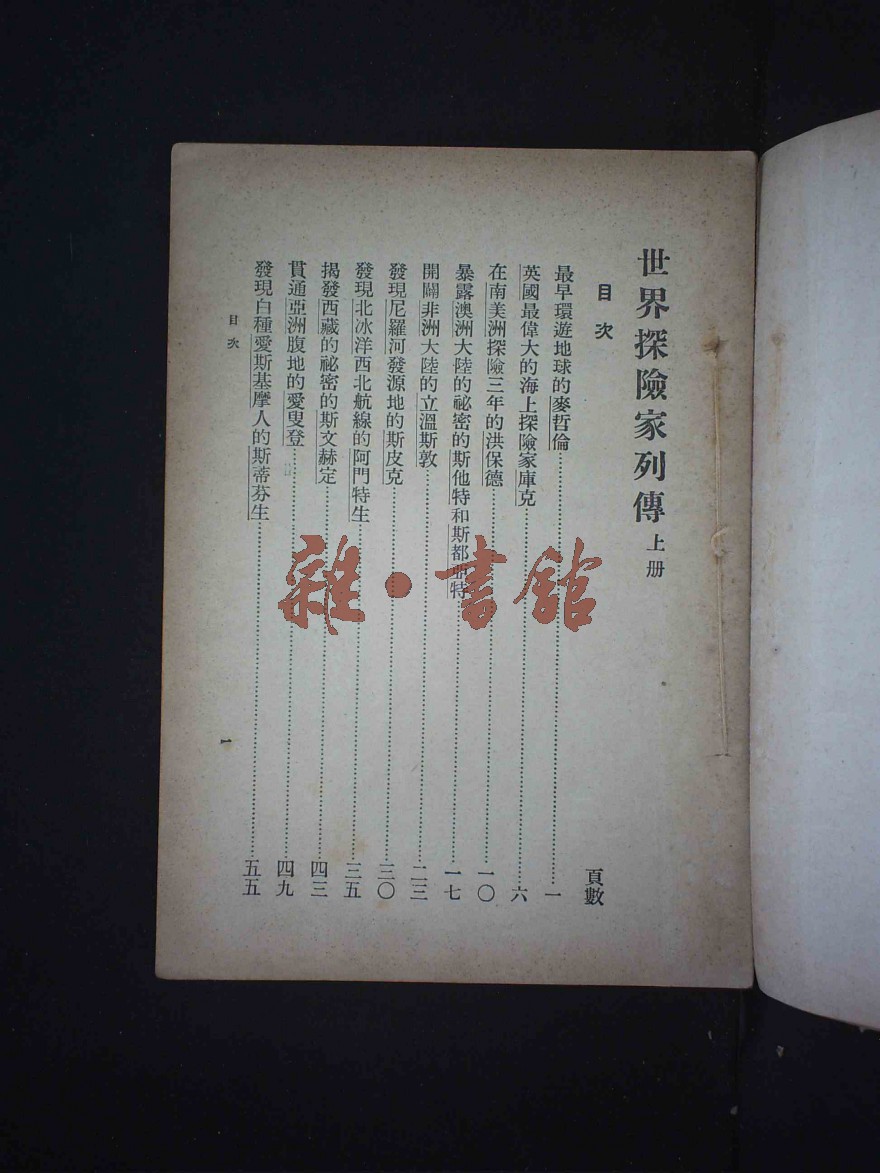 世界探險家列傳 上册
目次
頁數
最早環遊地球的麥哲倫……一
英國最偉大的海上探險家庫克……六
在南美洲探險三年的洪保德……一〇
暴露澳洲大陸的祕密的斯他特和斯都亞特……一七
開闢非洲大陸的立溫斯敦……二三
發現尼羅河發源地的斯皮克……三〇
發現北冰洋西北航線的阿門特生……三五
揭發西藏的祕密的斯文赫定……四三
貫通亞洲腹地的愛叟登……四九
發現白種愛斯基摩人的斯蒂芬生……五五
目次
一
雜·書館